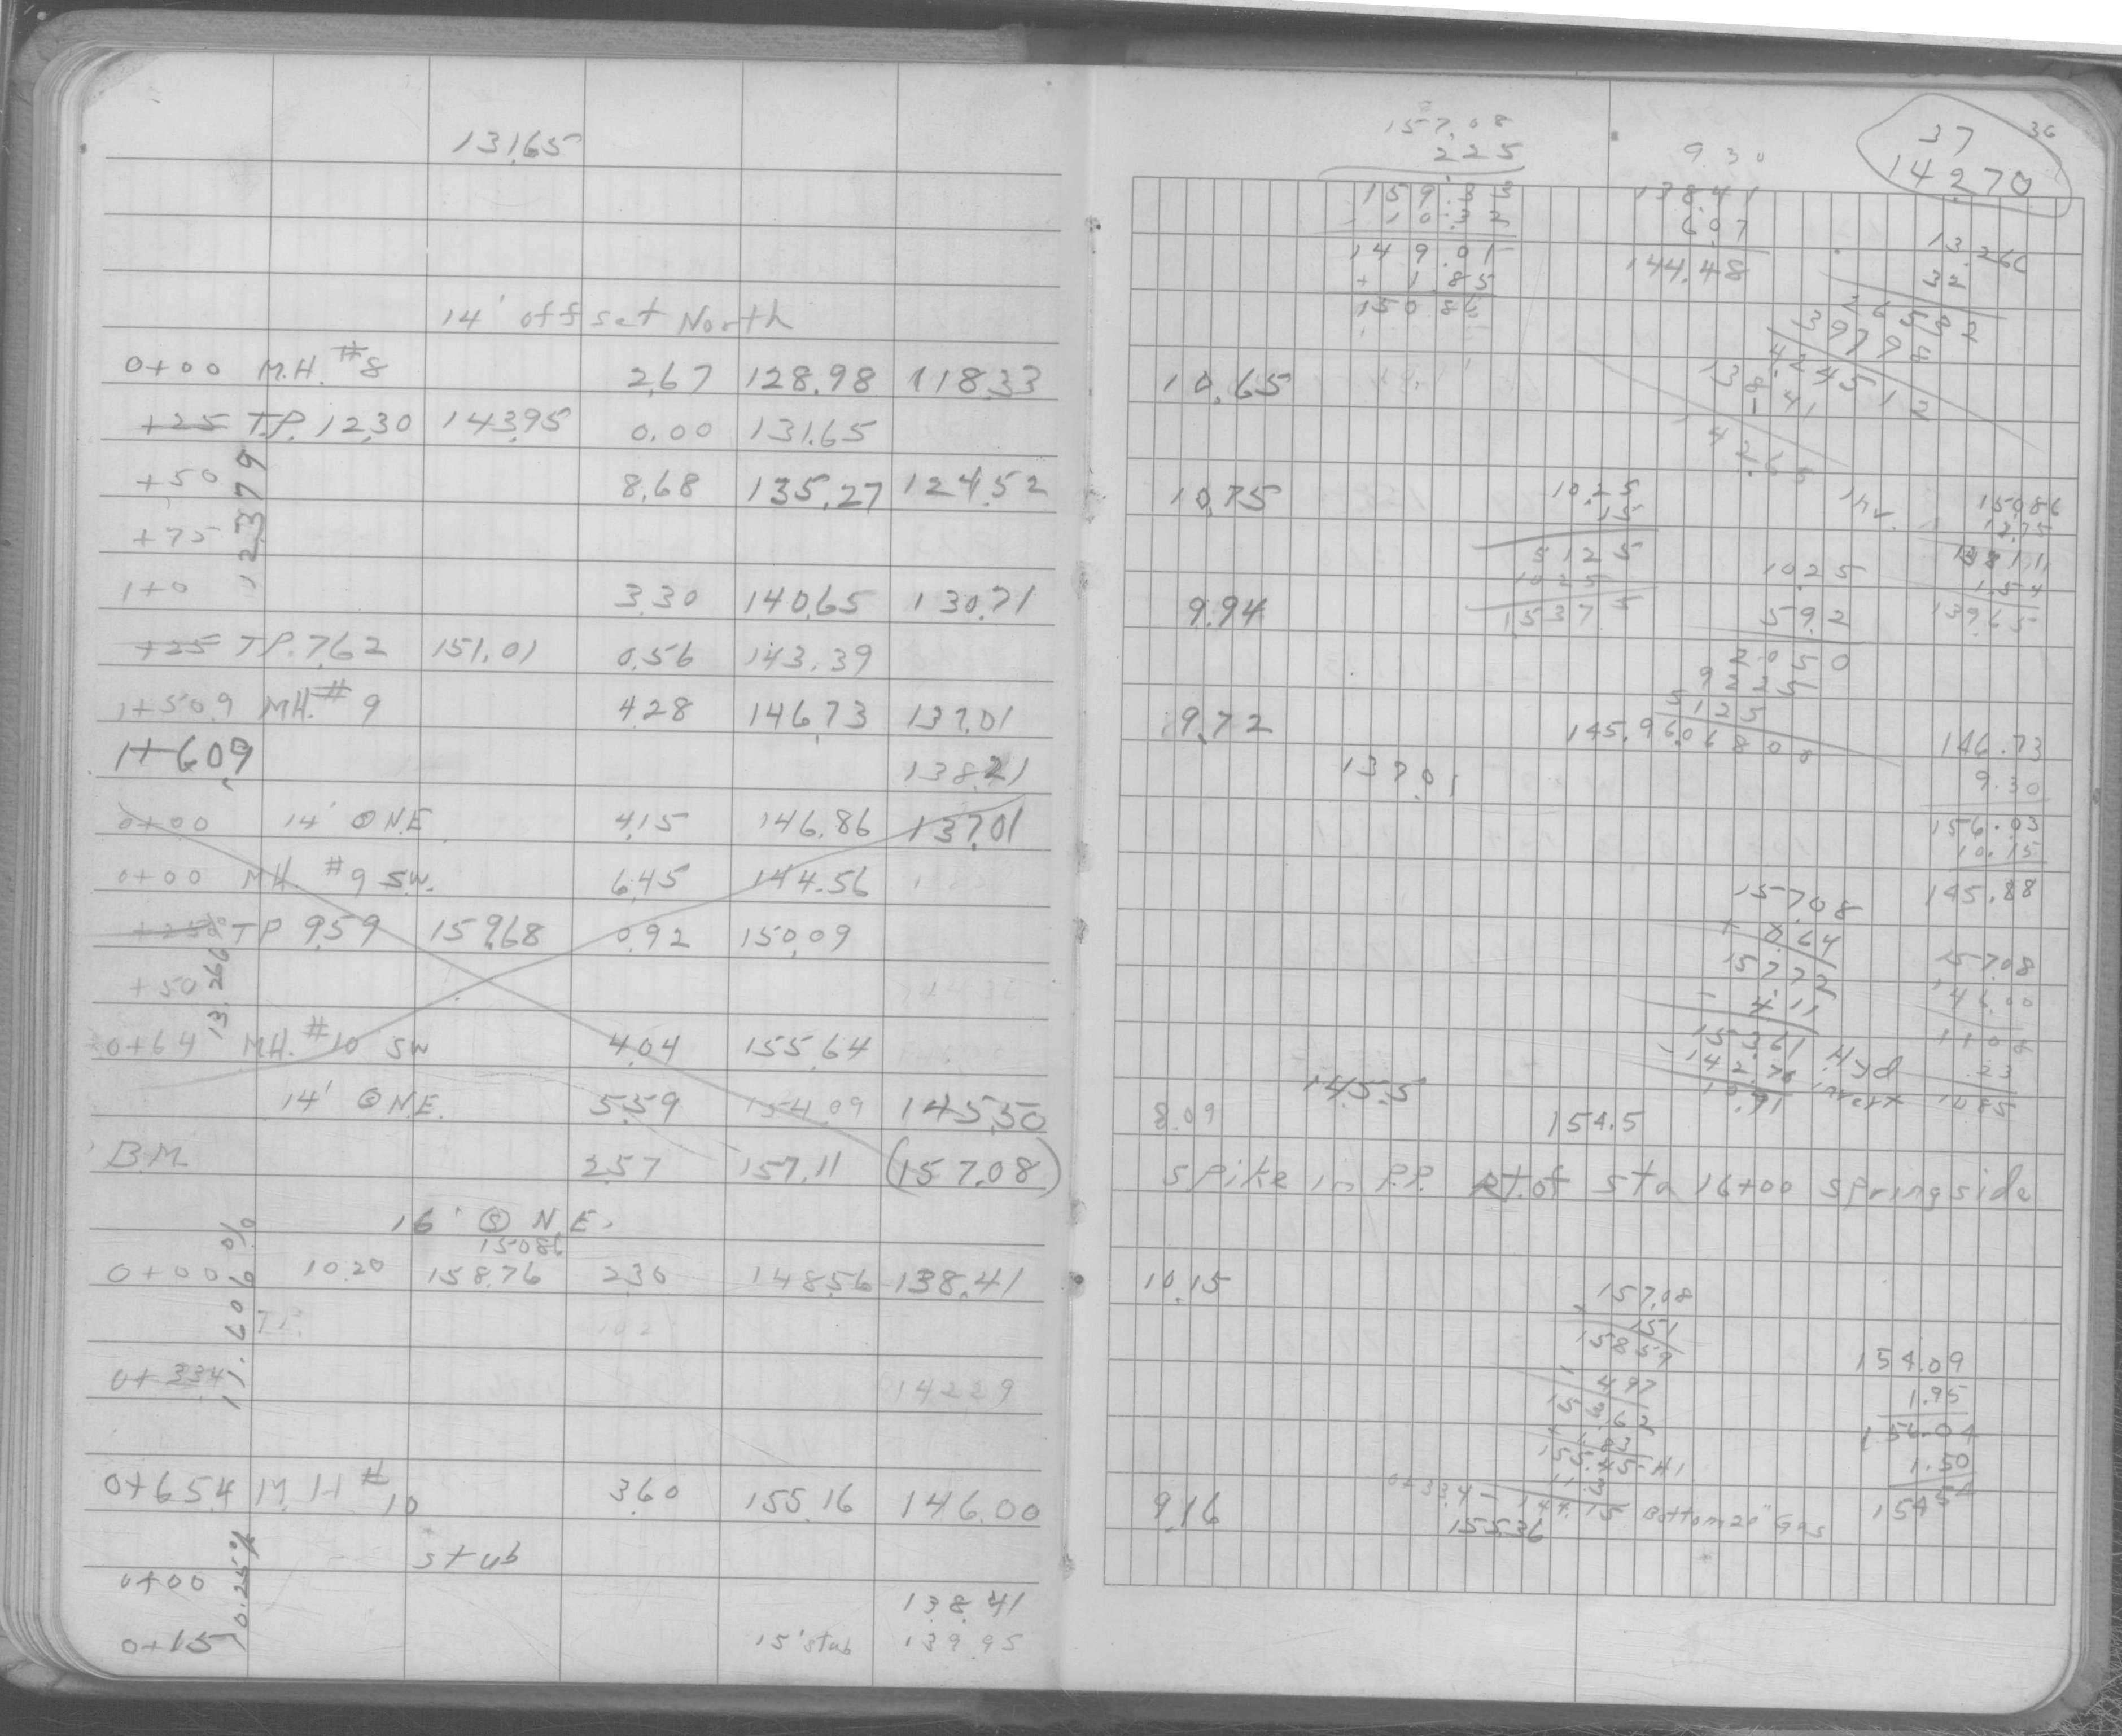 131.65
14' offset North
0+00 M.H. #8 2.67 128.98 118.33
+25 T.P. 12.30 143.95 0.00 131.65
+50 8.68 135.27 124.52
12.379
+75
1+0 3.30 140.65 130.71
+25 T.P. 7.62 151.01 0.56 143.39
1+50.9 M.H. #9 4.28 146.73 137.01
1+60.9 138.21
0+00 14' O N.E. 4.15 146.86 137.01
0+00 M.H. #9 S.W. 6.45 144.56
T.P. 9.59 159.68 0.92 150.09
+50
13.266
0+64 M.H. #10 SW 4.04 155.64
14' O N.E. 5.59 154.09 145.50
B.M. 2.57 157.11 (157.08)
16' O N.E.
150.86
0+00 10.20 158.76 2.30 148.56 138.41
T.P.
11.606%
0+33.4 142.29
0+65.4 M.H. #10 3.60 155.16 146.00
stub
10.25%
0+00 138.41
0+15 15' stub 139.95
36
37
142.70
157.08
2.25
159.33
10.32
149.01
+ 1.85
150.86
9.30
138.41
6.07
144.48
13.266
32
26532
39798
4.24512
138.41
10.65
10.75
10.25
15
5125
1025
1.5375
Inv.
150.86
12.75
138.11
1.54
139.65
9.94
10.25
592
2050
9225
5125
6.06800
145.9
9.72
137.01
146.73
9.30
156.03
10.15
145.88
157.08
+ 0.64
157.72
- 4.11
153.61 Hyd
- 142.70 invert
10.91
157.08
146.00
11.08
.23
10.85
8.09 145.5 154.5
Spike in P.P. Rt. of sta 16+00 Springside
10.15
157.08
1.51
158.59
154.09
1.95
156.04
1.50
154.54
0+33.4 - 144.15 Bottom 20" Gas
9.16 155.36